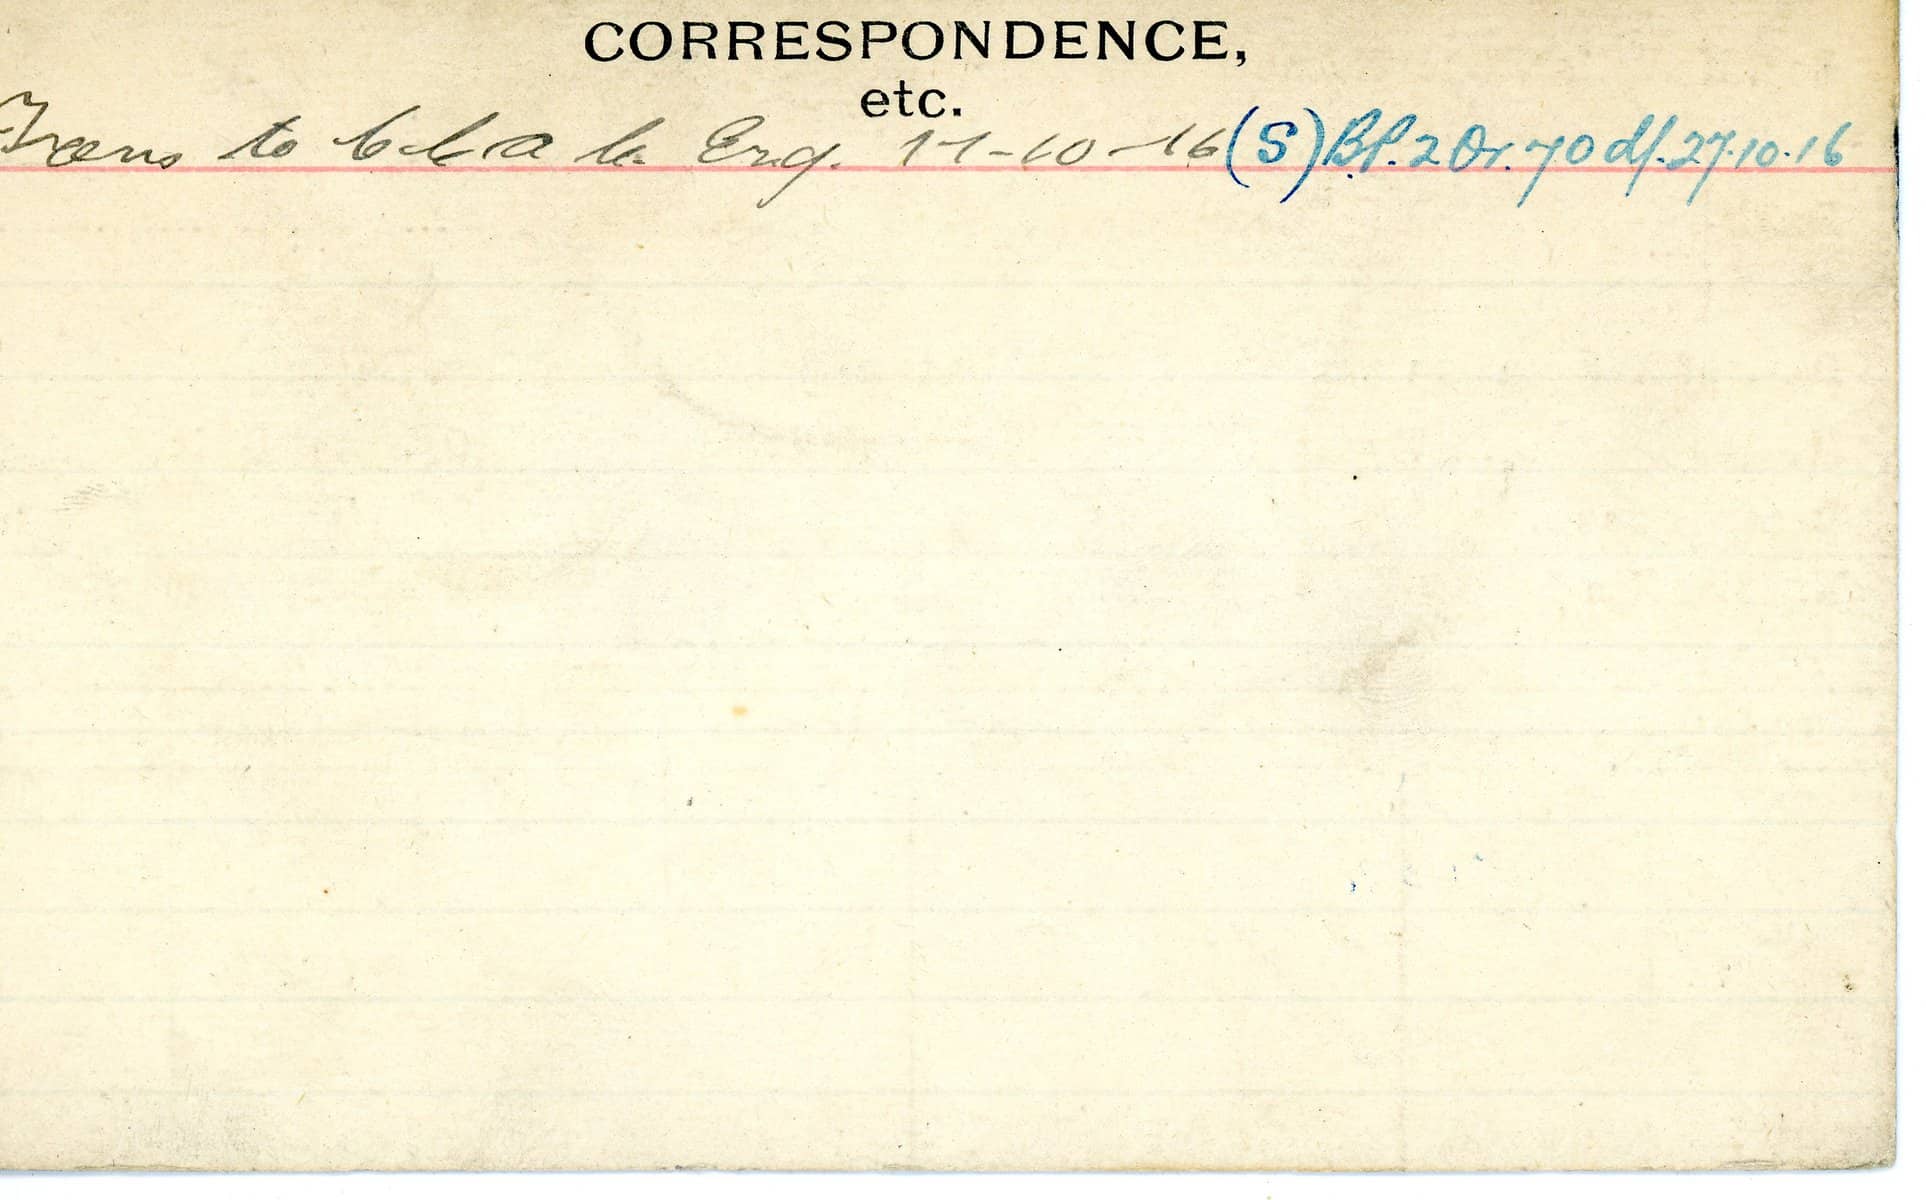 CORRESPONDENCE,
etc.
Trans to C.C.A.C. Eng. 17-10-16 (S) Bf. 2 Or. 70 d/. 27.10.16